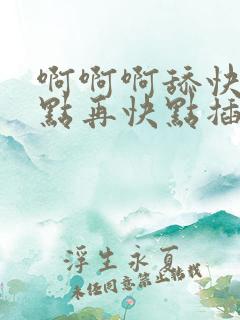 啊啊啊舔快
點再快點插
浮生永夏
未經同意禁止轉載